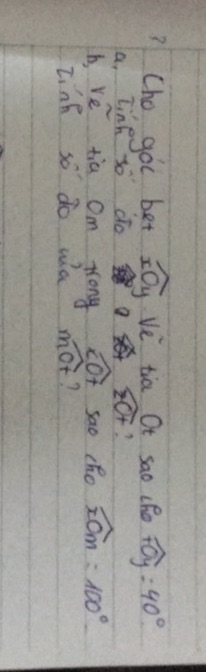 ?
Cho góc bẹt xOy Vẽ tia Ot sao cho tOy = 40°
a, Tính số đo xOt?
b, Vẽ tia Om trong xOt sao cho xOm = 100°
Tính số đo của mOt?